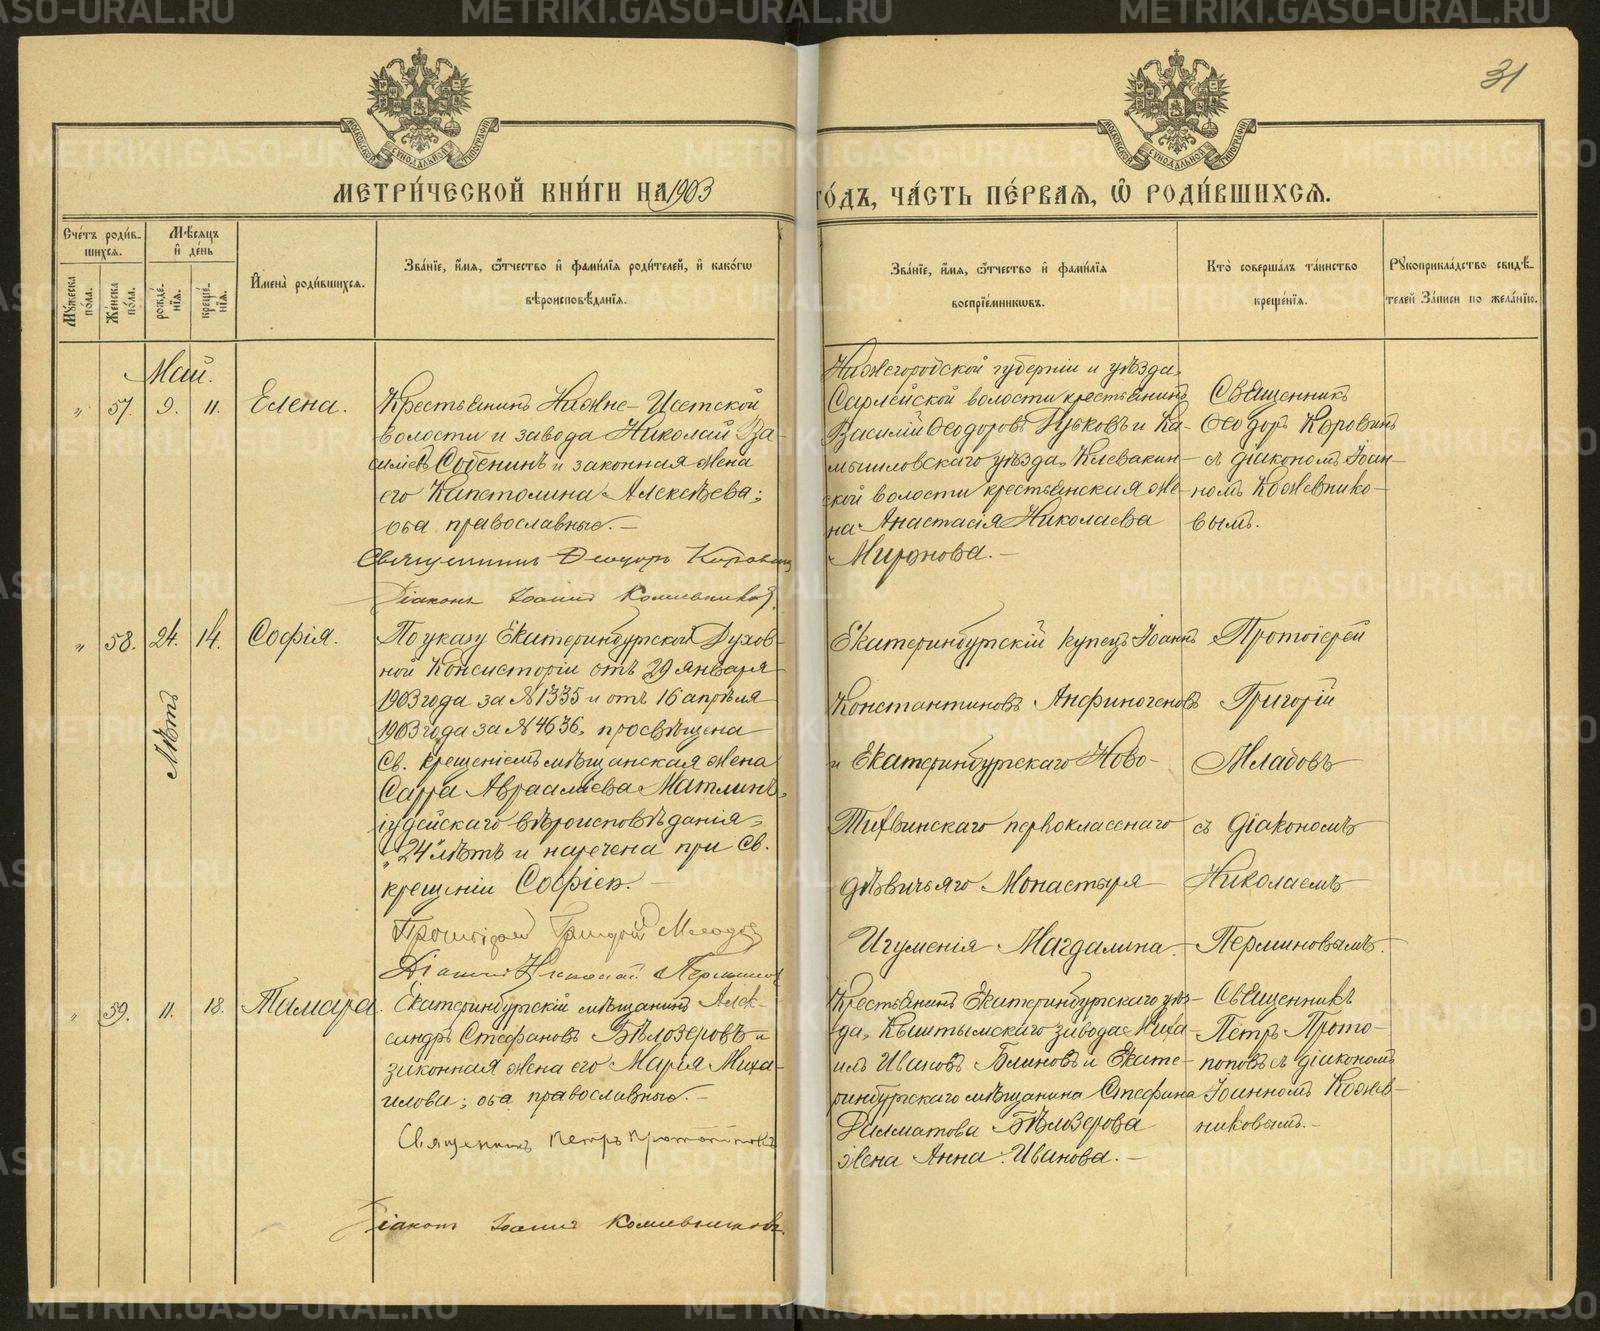 31
МЕТРИ́ЧЕСКОЙ КНИ́ГИ НА 1903
ГО́ДЪ, ЧА́СТЬ ПЕ́РВАѦ, Ѡ҆ РОДИ́ВШИХСѦ.
Сче́тъ роди́в-
шихсѧ.
Мѣ́сѧцъ
и҆ де́нь
Мꙋжеска
по́ла.
Же́нска
по́ла.
рожде́-
нїѧ.
креще́-
нїѧ.
И҆мена̀ роди́вшихсѧ.
Зва́нїе, и҆́мѧ, ѻ҆́тчество и҆ фами́лїѧ роди́телей, и҆ како́гѡ
вѣроисповѣ́данїѧ.
Зва́нїе, и҆́мѧ, ѻ҆́тчество и҆ фами́лїѧ
воспрїе́мникѡвъ.
Кто̀ соверша́лъ та́инство
креще́нїѧ.
Рꙋкоприкла́дство свидѣ́-
телей За́писи по жела́нїю.
Май.
" 57. 9. 11. Елена.
Крестьянинъ Нижне-Исетской
волости и завода Николай Ва-
сильевъ Собенинъ и законная жена
его Капетолина Алексѣева;
оба православные.-
Священникъ Ѳеодоръ Коровинъ
Діаконъ Іоаннъ Кожевниковъ.
Нижегородской губерніи и уѣзда,
Сарлейской волости крестьянинъ
Василій Ѳеодоровъ Гуськовъ и Ка-
мышловскаго уѣзда, Клевакин-
ской волости крестьянская же-
на Анастасія Николаева
Миронова.-
Священникъ
Ѳеодоръ Коровинъ
съ діакономъ Іоан-
номъ Кожевнико-
вымъ.
" 58. 24. 14. Софія.
Лѣтъ
По указу Екатеринбургской Духов-
ной Консисторіи отъ 29 января
1903 года за № 1335 и отъ 16 апрѣля
1903 года за № 4636, просвѣщена
Св. крещеніемъ мѣщанская жена
Сарра Авраамлева Матлинъ,
іудейскаго вѣроисповѣданія,
"24" лѣтъ и наречена при Св.
крещеніи Софіей.-
Протоіерей Григорій Младовъ
Діаконъ Николай Перминовъ
Екатеринбургскій купецъ Іоаннъ
Константиновъ Анфиногеновъ
и Екатеринбургскаго Ново-
Тихвинскаго первокласснаго
дѣвичьяго Монастыря
Игуменія Магдалина.
Протоіерей
Григорій
Младовъ
съ діакономъ
Николаемъ
Перминовымъ.
" 59. 11. 18. Тамара.
Екатеринбургскій мѣщанинъ Алек-
сандръ Стефановъ Бѣлозеровъ и
законная жена его Марія Миха-
илова; оба православные.-
Священникъ Петръ Протопоповъ
Діаконъ Іоаннъ Кожевниковъ.
Крестьянинъ Екатеринбургскаго уѣз-
да, Кыштымскаго завода Миха-
илъ Ивановъ Блиновъ и Екате-
ринбургскаго мѣщанина Стефана
Далматова Бѣлозерова
жена Анна Иванова.-
Священникъ
Петръ Прото-
поповъ съ діакономъ
Іоанномъ Кожев-
никовымъ.-